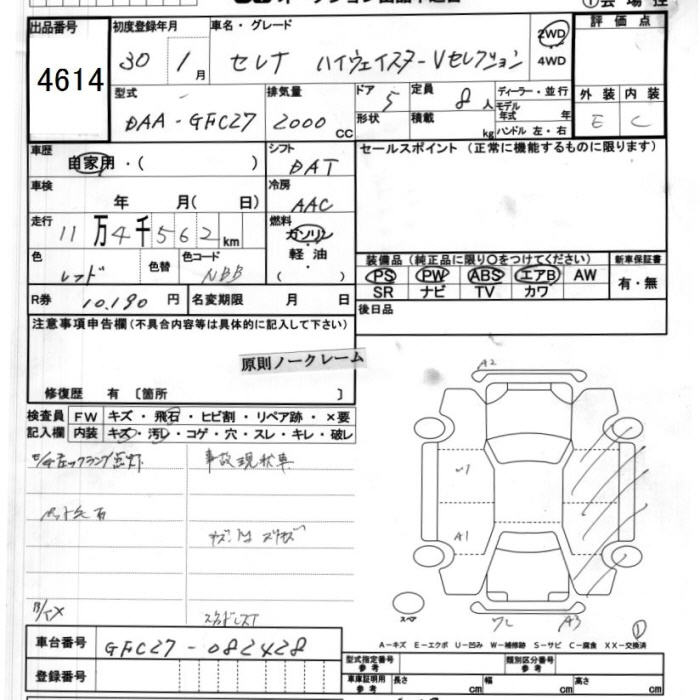 出品番号
4614
初度登録年月
30年 1月
車名・グレード
セレナ ハイウェイスターVセレクション
2WD
4WD
評価点
型式
DAA-GFC27
排気量
2000 CC
ドア 5
形状
定員 8人
積載 kg
ディーラー・並行
モデル年式 年
ハンドル 左・右
外装 内装
E C
車歴
自家用・( )
シフト
DAT
セールスポイント (正常に機能するものに限ります)
車検
年 月( 日)
冷房
AAC
走行
11万4千562km
燃料
ガソリン
軽油
( ・ )
色
レッド
色替
色コード
NBB
装備品 (純正品に限り○をつけてください)
新車保証書
PS PW ABS エアB AW
SR ナビ TV カワ
有・無
R券 10,190円
名変期限 月 日
後日品
注意事項申告欄(不具合内容等は具体的に記入して下さい)
原則ノークレーム
修復歴 有〔箇所 〕
検査員記入欄
FW キズ・飛石・ヒビ割・リペア跡・×要
内装 キズ・汚レ・コゲ・穴・スレ・キレ・破レ
事故現状車
A2
A1
A3
スペア
A-キズ E-エクボ U-凹み W-補修跡 S-サビ C-腐食 XX-交換済
車台番号 GFC27-082428
登録番号
型式指定番号 参考
類別区分番号 参考
車庫証明用 参考
長さ cm
幅 cm
高さ cm